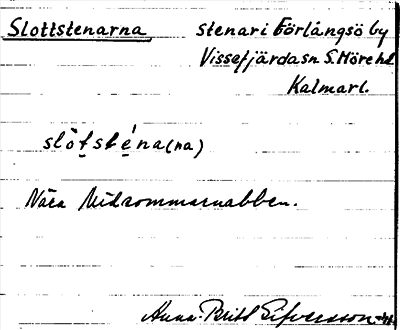 Slottstenarna
stenar i Förlångsö by
Vissefjärda sn S. Möre hd
Kalmar l.
slòtsténa(na)
Nära Midsommarnabben.
Anna-Britt